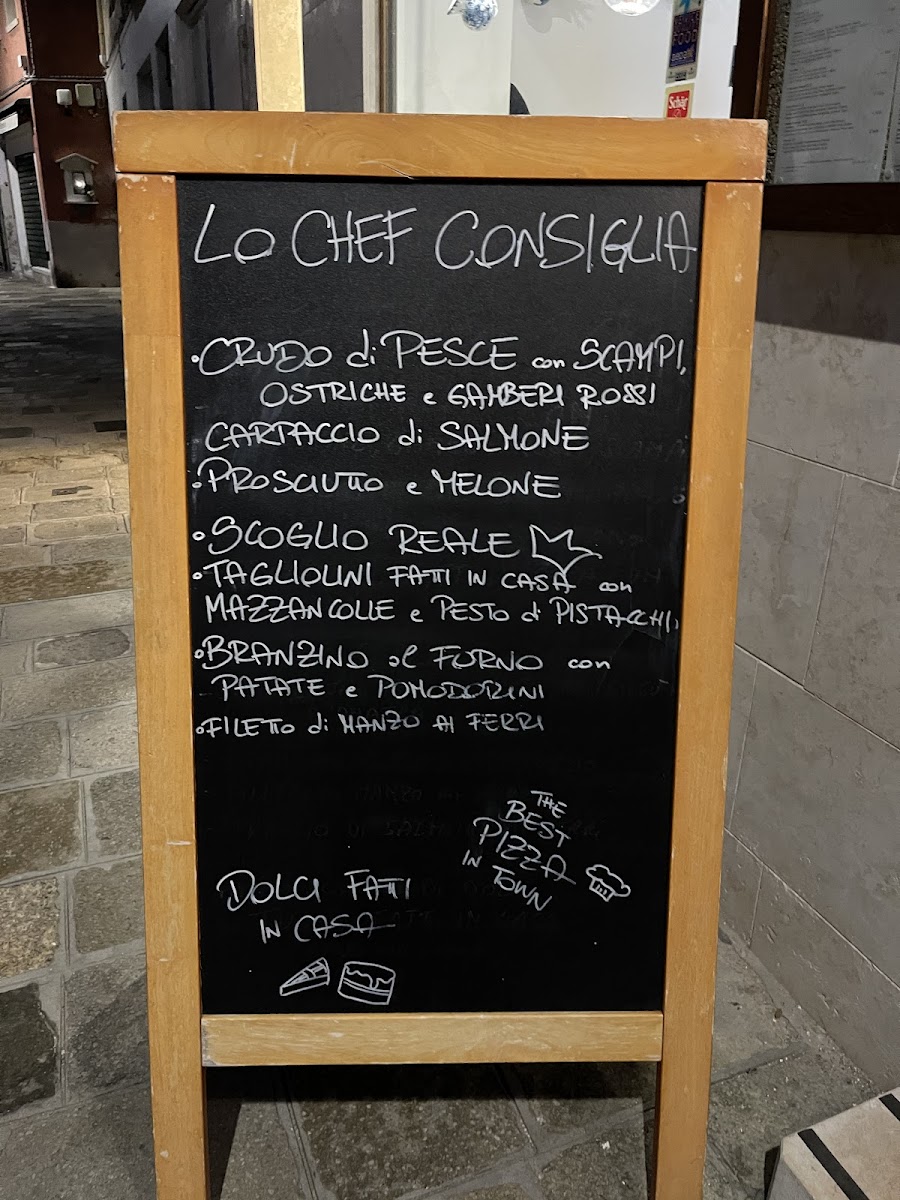 LO CHEF CONSIGLIA
• CRUDO di PESCE con SCAMPI,
OSTRICHE e GAMBERI ROSSI
CARPACCIO di SALMONE
• PROSCIUTTO e MELONE
• SCOGLIO REALE
• TAGLIOLINI FATTI IN CASA con
MAZZANCOLLE e PESTO di PISTACCHI,
• BRANZINO al FORNO con
PATATE e POMODORINI
• FILETTO di MANZO AI FERRI
THE
BEST
PIZZA
IN TOWN
DOLCI FATTI
IN CASA
Schär